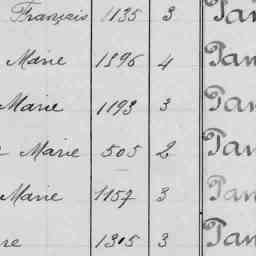 François 1135 3 Tan
Marie 1396 4 Tan
Marie 1193 3 Tan
Marie 505 2 Tan
Marie 1157 3 Tan
re 1305 3 Tan